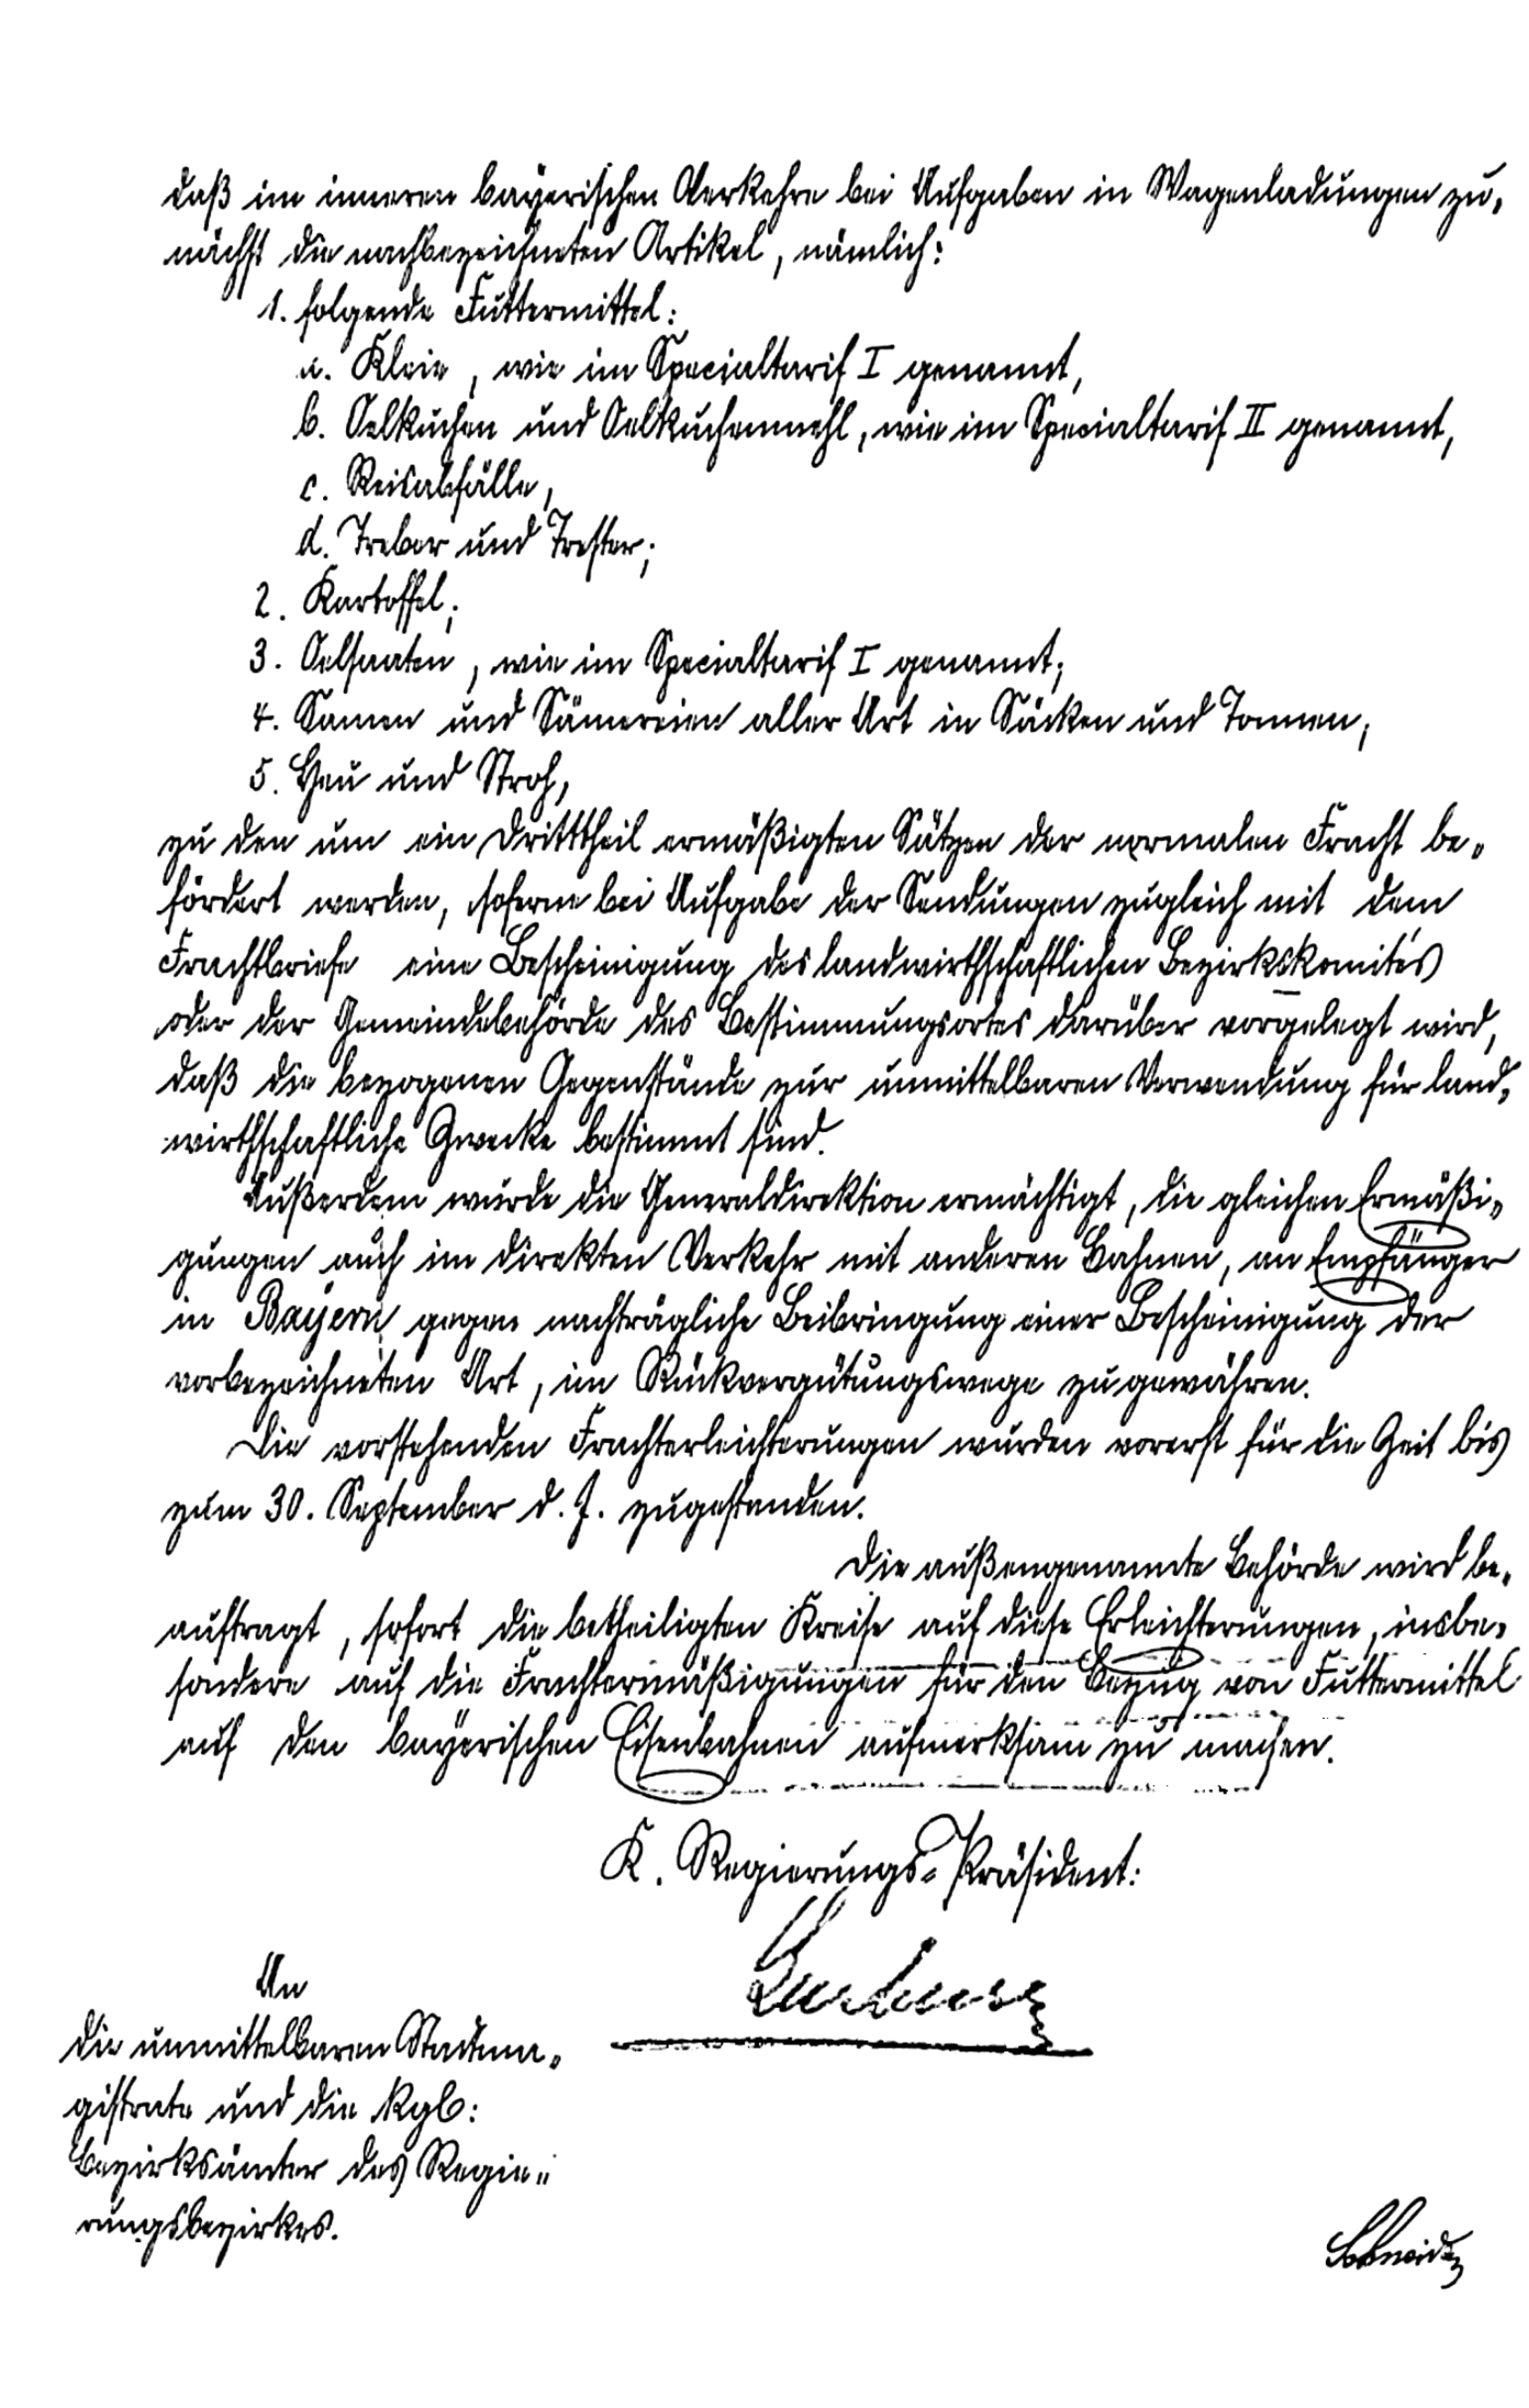 daß im inneren bayerischen Verkehre bei Aufgaben in Wagenladungen zu-
nächst die nachbezeichneten Artikel, nämlich:
1. folgende Futtermittel:
a. Kleie, wie im Specialtarif I genannt,
b. Oelkuchen und Oelkuchenmehl, wie im Specialtarif II genannt,
c. Reisabfälle,
d. Treber und Trester;
2. Kartoffel;
3. Oelsaaten, wie im Specialtarif I genannt;
4. Samen und Sämereien aller Art in Säcken und Tonnen;
5. Heu und Stroh,
zu den um ein Dritttheil ermäßigten Sätzen der normalen Fracht be-
fördert werden, soferne bei Aufgabe der Sendungen zugleich mit dem
Frachtbriefe eine Bescheinigung des landwirthschaftlichen Bezirkskomités
oder der Gemeindebehörde des Bestimmungsortes darüber vorgelegt wird,
daß die bezogenen Gegenstände zur unmittelbaren Verwendung für land-
wirthschaftliche Zwecke bestimmt sind.
Außerdem wurde die Generaldirektion ermächtigt, die gleichen Ermäßi-
gungen auch im direkten Verkehr mit anderen Bahnen, an Empfänger
in Bayern gegen nachträgliche Beibringung einer Bescheinigung der
vorbezeichneten Art, im Rückvergütungswege zu gewähren.
Die vorstehenden Frachterleichterungen wurden vorerst für die Zeit bis
zum 30. September d. J. zugestanden.
Die außengenannte Behörde wird be-
auftragt, sofort die betheiligten Kreise auf diese Erleichterungen, insbe-
sondere auf die Frachtermäßigungen für den Bezug von Futtermittel
auf den bayerischen Eisenbahnen aufmerksam zu machen.
K. Regierungs-Präsident:
An
die unmittelbaren Stadtma-
gistrate und die kgl:
Bezirksämter des Regie-
rungsbezirkes.
Schneider